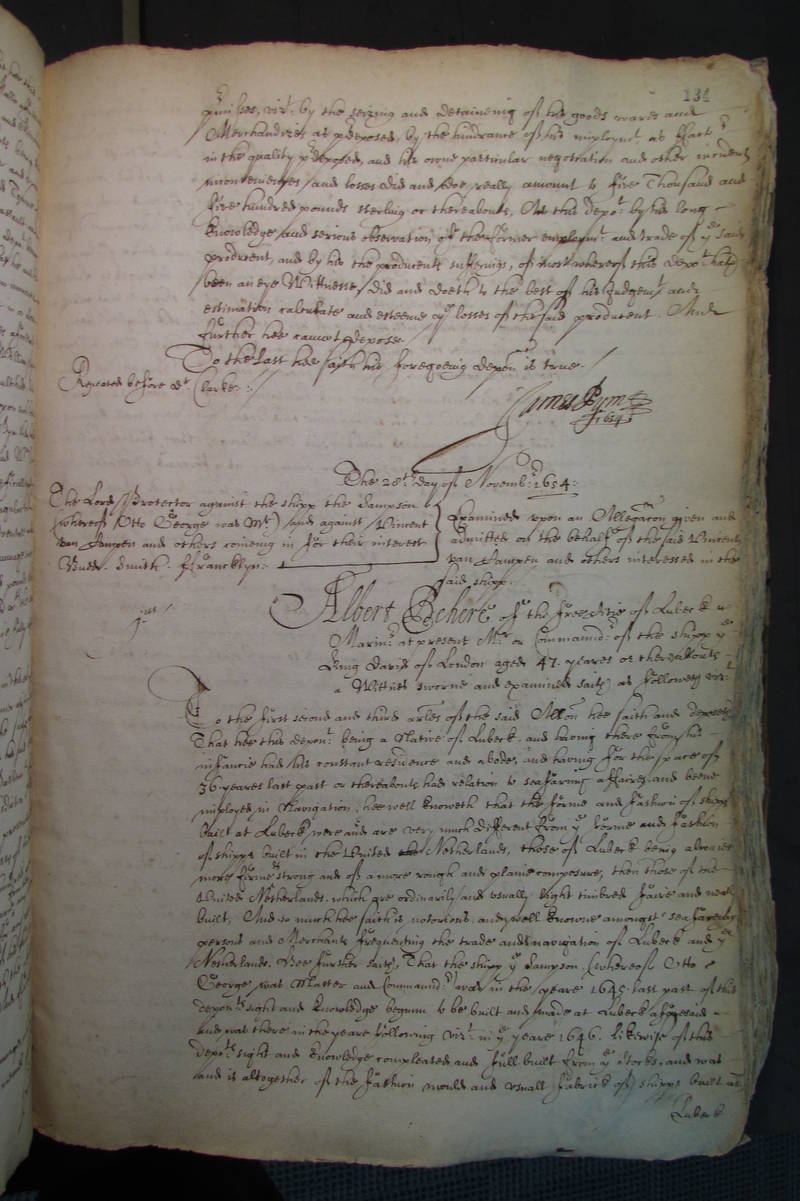 134
premises, vizt. by the seizing and detaineing of his goods wares and
Merchandizes as predeposed, by the hindrance of his imploymt. as Factor
in the quality predeposed, and his owne particular negotiation and other incident
inconveniences and losses did and doe really amount to five Thousand and
five hundred pounds sterling or thereabouts, As this depot. by his long
knowledge and serious observation of the former employmt. and trade of ye said
producent, and by his the producents sufferings, of most whereof this depot. hath
been an eye Wittnesse, did and doeth to the best of his Judgemt. and
estimation calculate and esteeme ye losses of the said producent. And
further hee cannot depose.
To the last hee saith his foregoeing deposn. is true.
Repeated before Dr. Clarke:
James Pym
1654
The 28th. day of Novembr. 1654:
The Lord Protector against the shipp the Sampson
(whereof Otto George was Mr.) and against Vincent
van Campen and others comeing in for their interest
Budd. Smith. Francklyn:
Examined upon an Allegacon given and
admitted on the behalf of the said Vincent
van Campen and others interessed in the
said shipp.
1us
Albert Schere of the free Citie of Lubeck
Marinr. at present Mr. or Commandr. of the shipp ye
King David of London aged 47. yeares or thereabouts
a Wittnes sworne and examined saith as followeth vizt.
To the first second and third arles of the said Allon. hee saith and deposeth
That hee this depont. being a Native of Lubeck, and having there from his
infancie had his constant residence and abode, and having for the space of
36 yeares last past or thereabouts had relation to seafaring affaires, and beene
imployed in Navigation, hee well knoweth that the forme and fashion of shipps
built at Lubeck were and are very much different from ye forme and fashion
of shipps built in the United the Netherlands, those of Lubeck being alwaies
more firme strong and of a more rough and plaine composure, then those of the
United Netherlands, which are ordinarily and usually light timbred faire and neat
built. And so much hee saith is notorious, and well knowne amongst seafareing
persons and Merchants frequenting the trade and navigation of Lubeck and ye
Netherlands. Hee further saith, That the shipp ye Sampson. (whereof Otto
George was Master and Commandr.) was in the yeare 1645. last past of this
deponts. sight and knowledge begunn to be built and made at Lubeck aforesaid
and was there in the yeare following vizt. in ye yeare 1646. likewise of this
depots. sight and knowledge compleated and full built from ye stocks, and was
and is altogether of the fashion mould and usuall fabrick of shipps built at
Lubeck